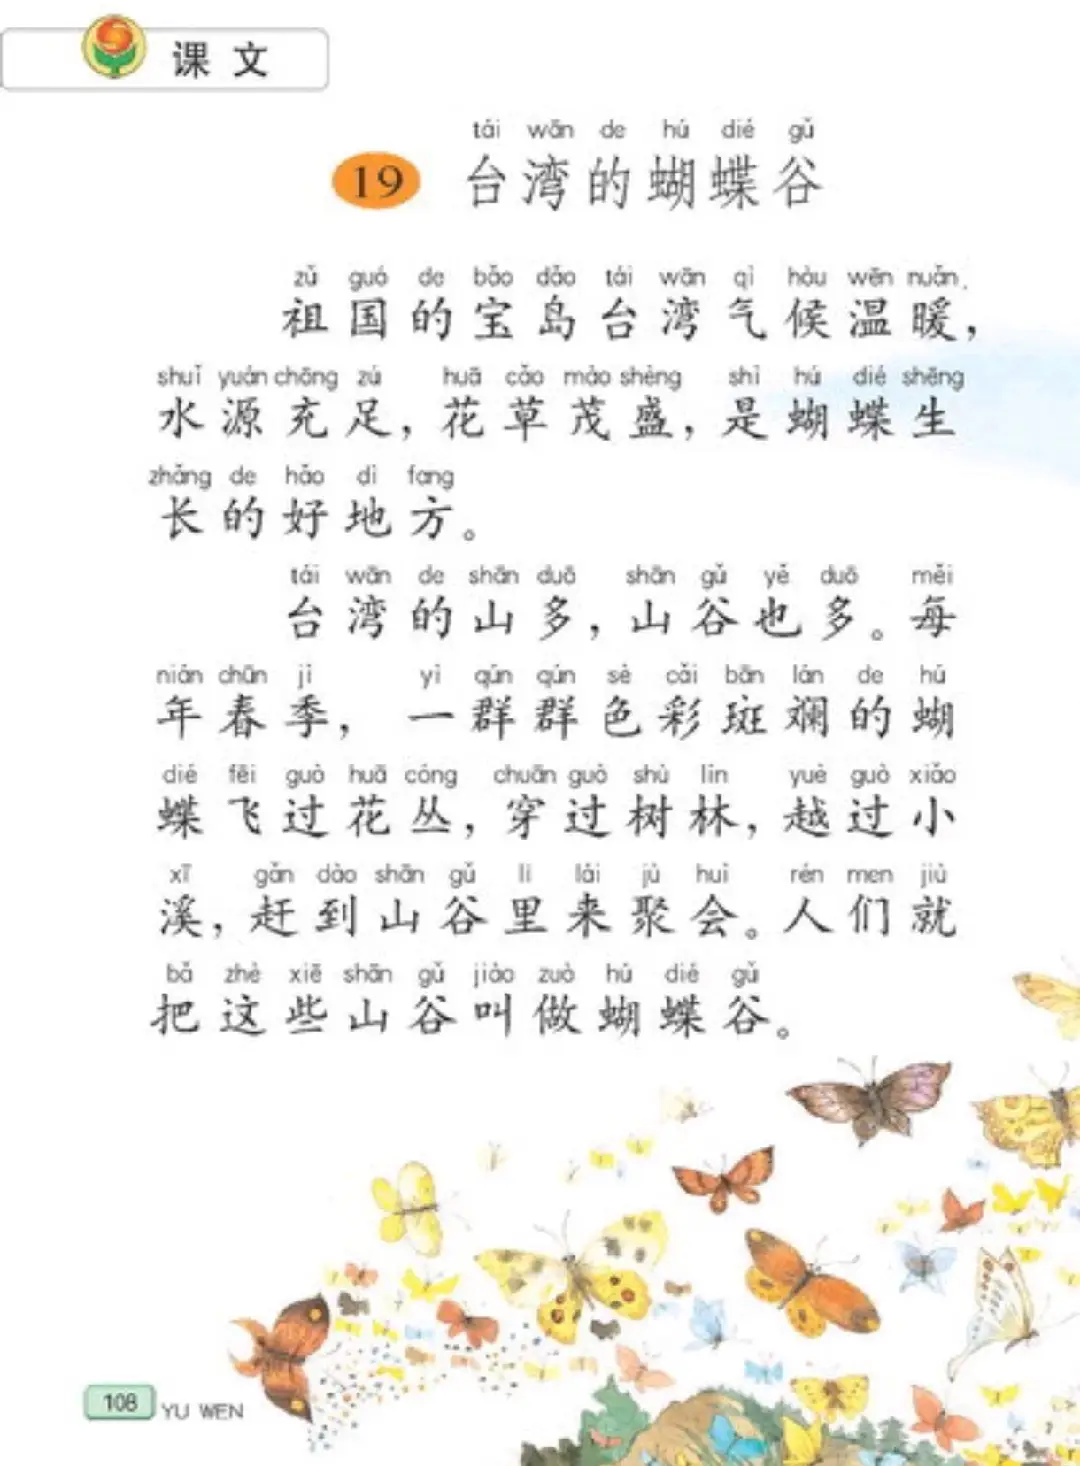 课文
tái wān de hú dié gǔ
19 台湾的蝴蝶谷
zǔ guó de bǎo dǎo tái wān qì hòu wēn nuǎn,
祖国的宝岛台湾气候温暖，
shuǐ yuán chōng zú huā cǎo mào shèng shì hú dié shēng
水源充足，花草茂盛，是蝴蝶生
zhǎng de hǎo dì fang
长的好地方。
tái wān de shān duō shān gǔ yě duō měi
台湾的山多，山谷也多。每
nián chūn jì yì qún qún sè cǎi bān lán de hú
年春季，一群群色彩斑斓的蝴
dié fēi guò huā cóng chuān guò shù lín yuè guò xiǎo
蝶飞过花丛，穿过树林，越过小
xī gǎn dào shān gǔ li lái jù huì rén men jiù
溪，赶到山谷里来聚会。人们就
bǎ zhè xiē shān gǔ jiào zuò hú dié gǔ
把这些山谷叫做蝴蝶谷。
108 YU WEN